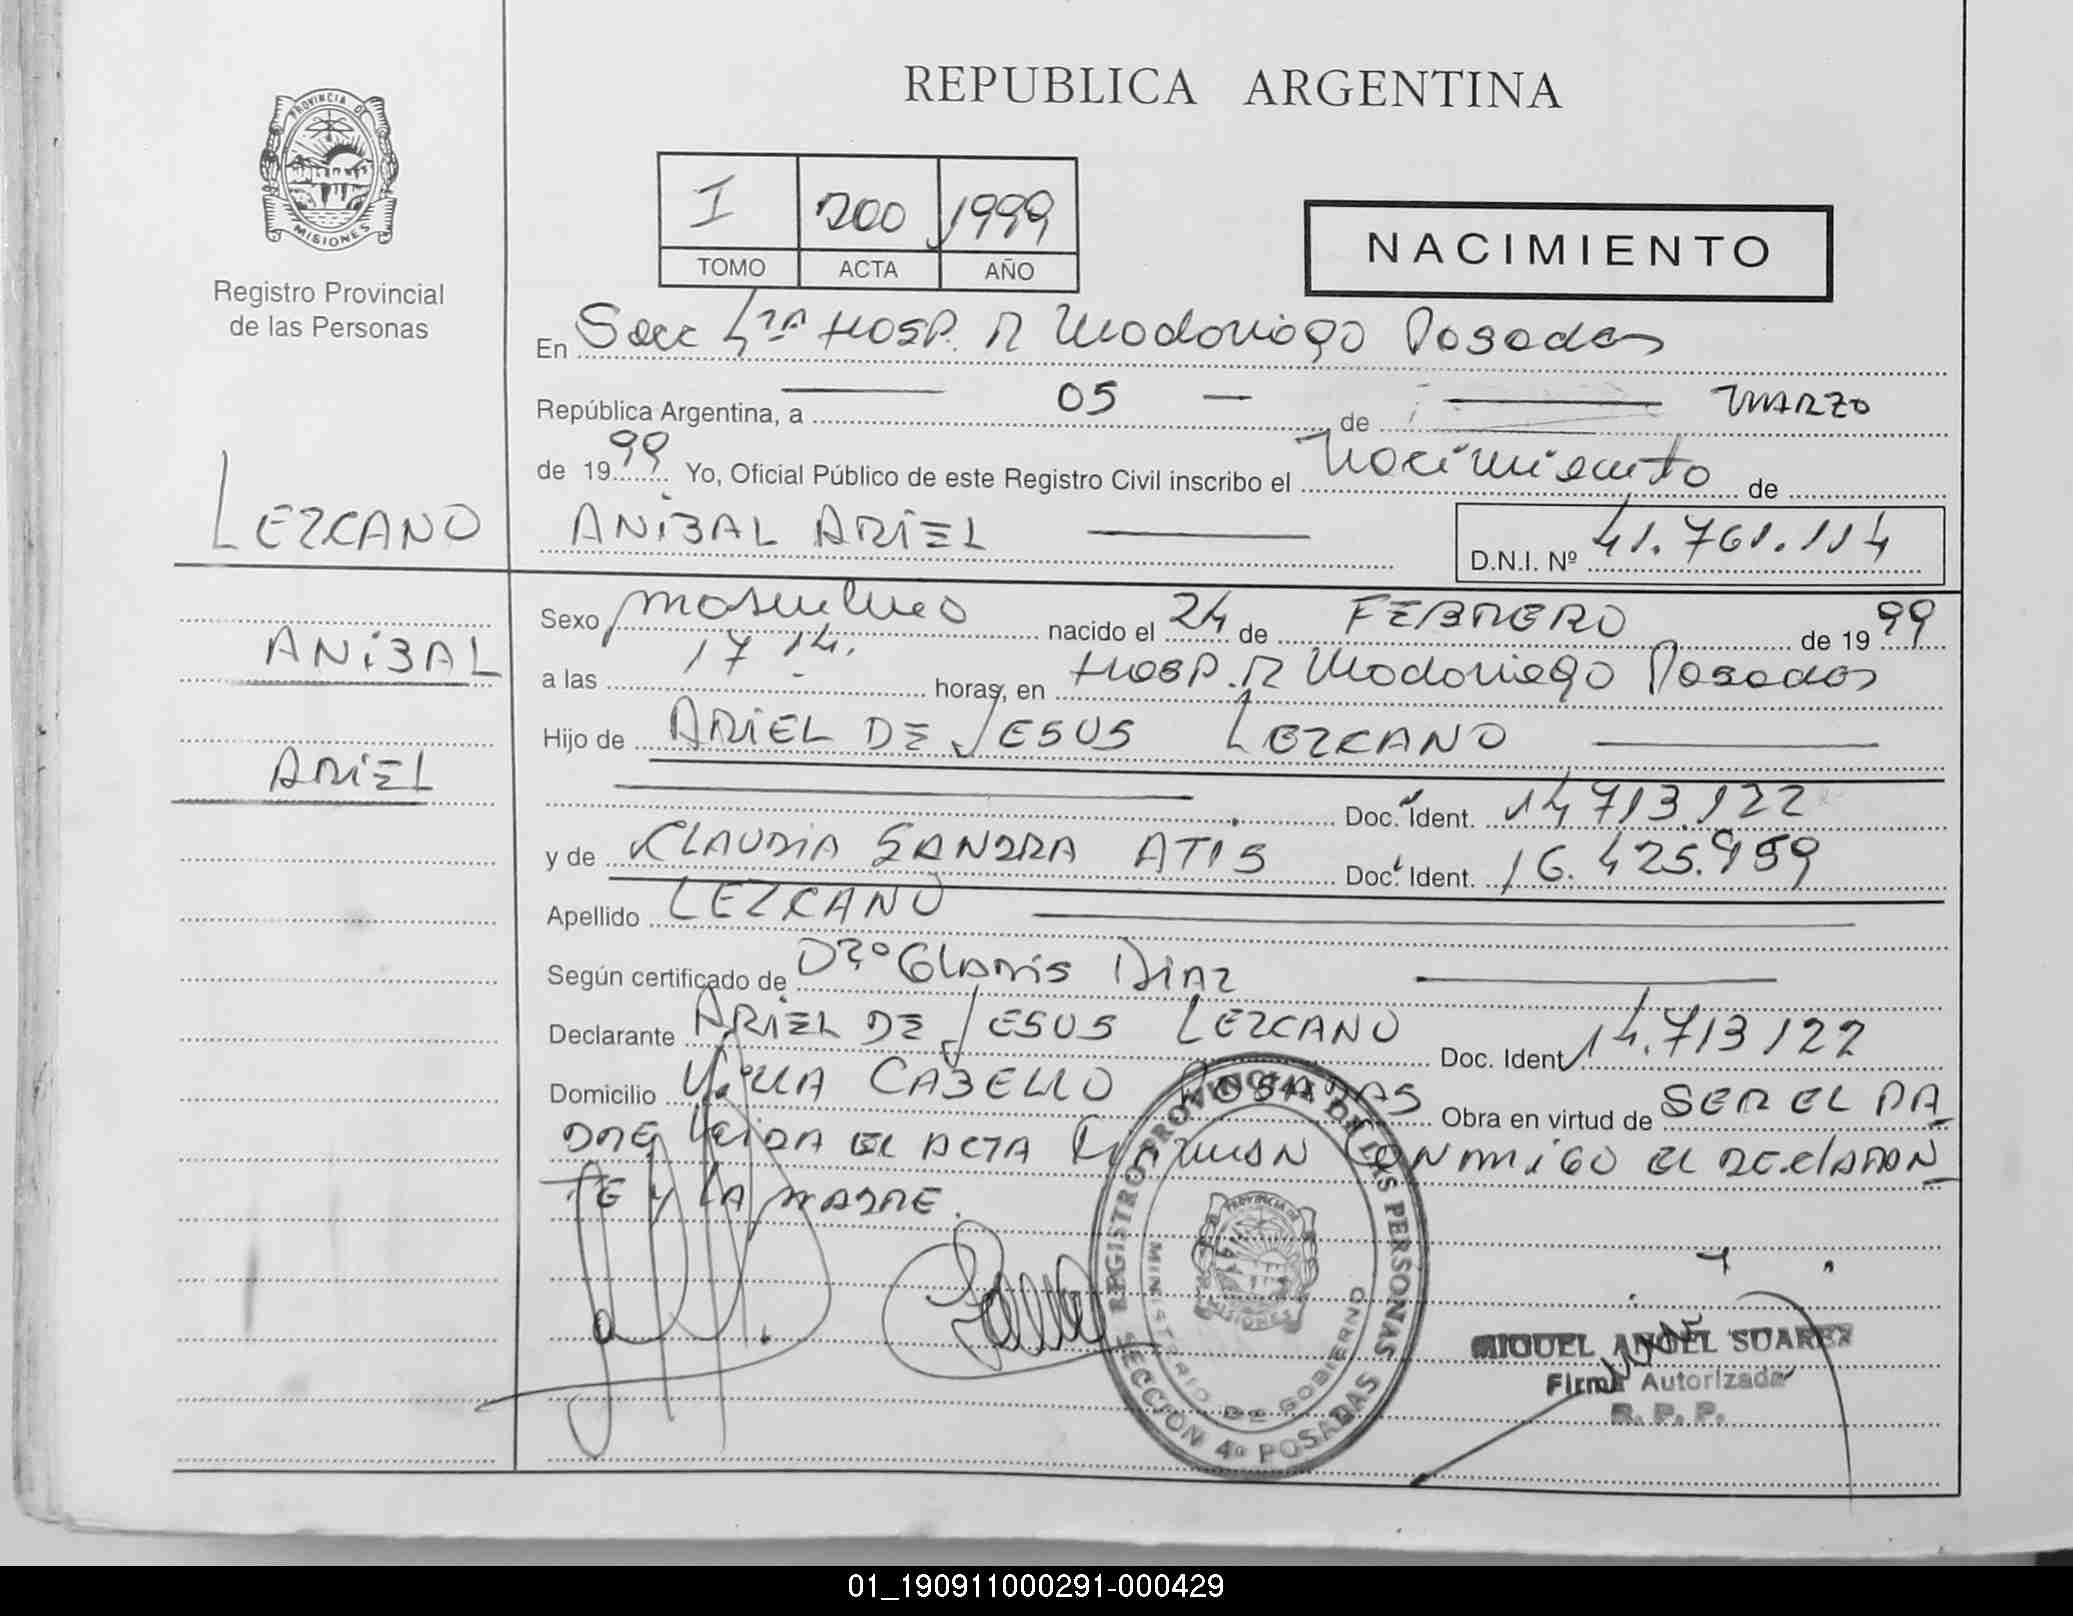 REPUBLICA ARGENTINA
PROVINCIA DE
MISIONES
Registro Provincial
de las Personas
I 200 1999
TOMO ACTA AÑO
NACIMIENTO
En Secc 4ta HOSP. R Madariaga Posadas
República Argentina, a 05 de MARZO
de 1999 Yo, Oficial Público de este Registro Civil inscribo el Nacimiento de
LEZCANO
ANiBAL ARiEL D.N.I. Nº 41.761.114
Sexo masculino nacido el 24 de FEBRERO de 1999
ANiBAL
a las 17 14. horas, en HOSP. R Madariaga Posadas
Hijo de ARiEL DE JESUS LEZCANO
ARiEL
Doc. Ident. 14 713.122
y de CLAUDiA SANDRA ATiS Doc. Ident. 16.425.959
Apellido LEZCANO
Según certificado de Dra GLADiS DiAZ
Declarante ARiEL DE JESUS LEZCANO Doc. Ident 14.713 122
Domicilio ViLLA CABELLO POSADAS Obra en virtud de SER EL PA
DRE LEiDA EL ACTA FiRMAN CONMiGO EL DECLARAN
TE Y LA MADRE.
REGISTRO PROVINCIAL DE LAS PERSONAS
MINISTERIO DE GOBIERNO
PROVINCIA DE
MISIONES
SECCION 4º POSADAS
MIGUEL ANGEL SUAREZ
Firma Autorizada
R. P. P.
01_190911000291-000429